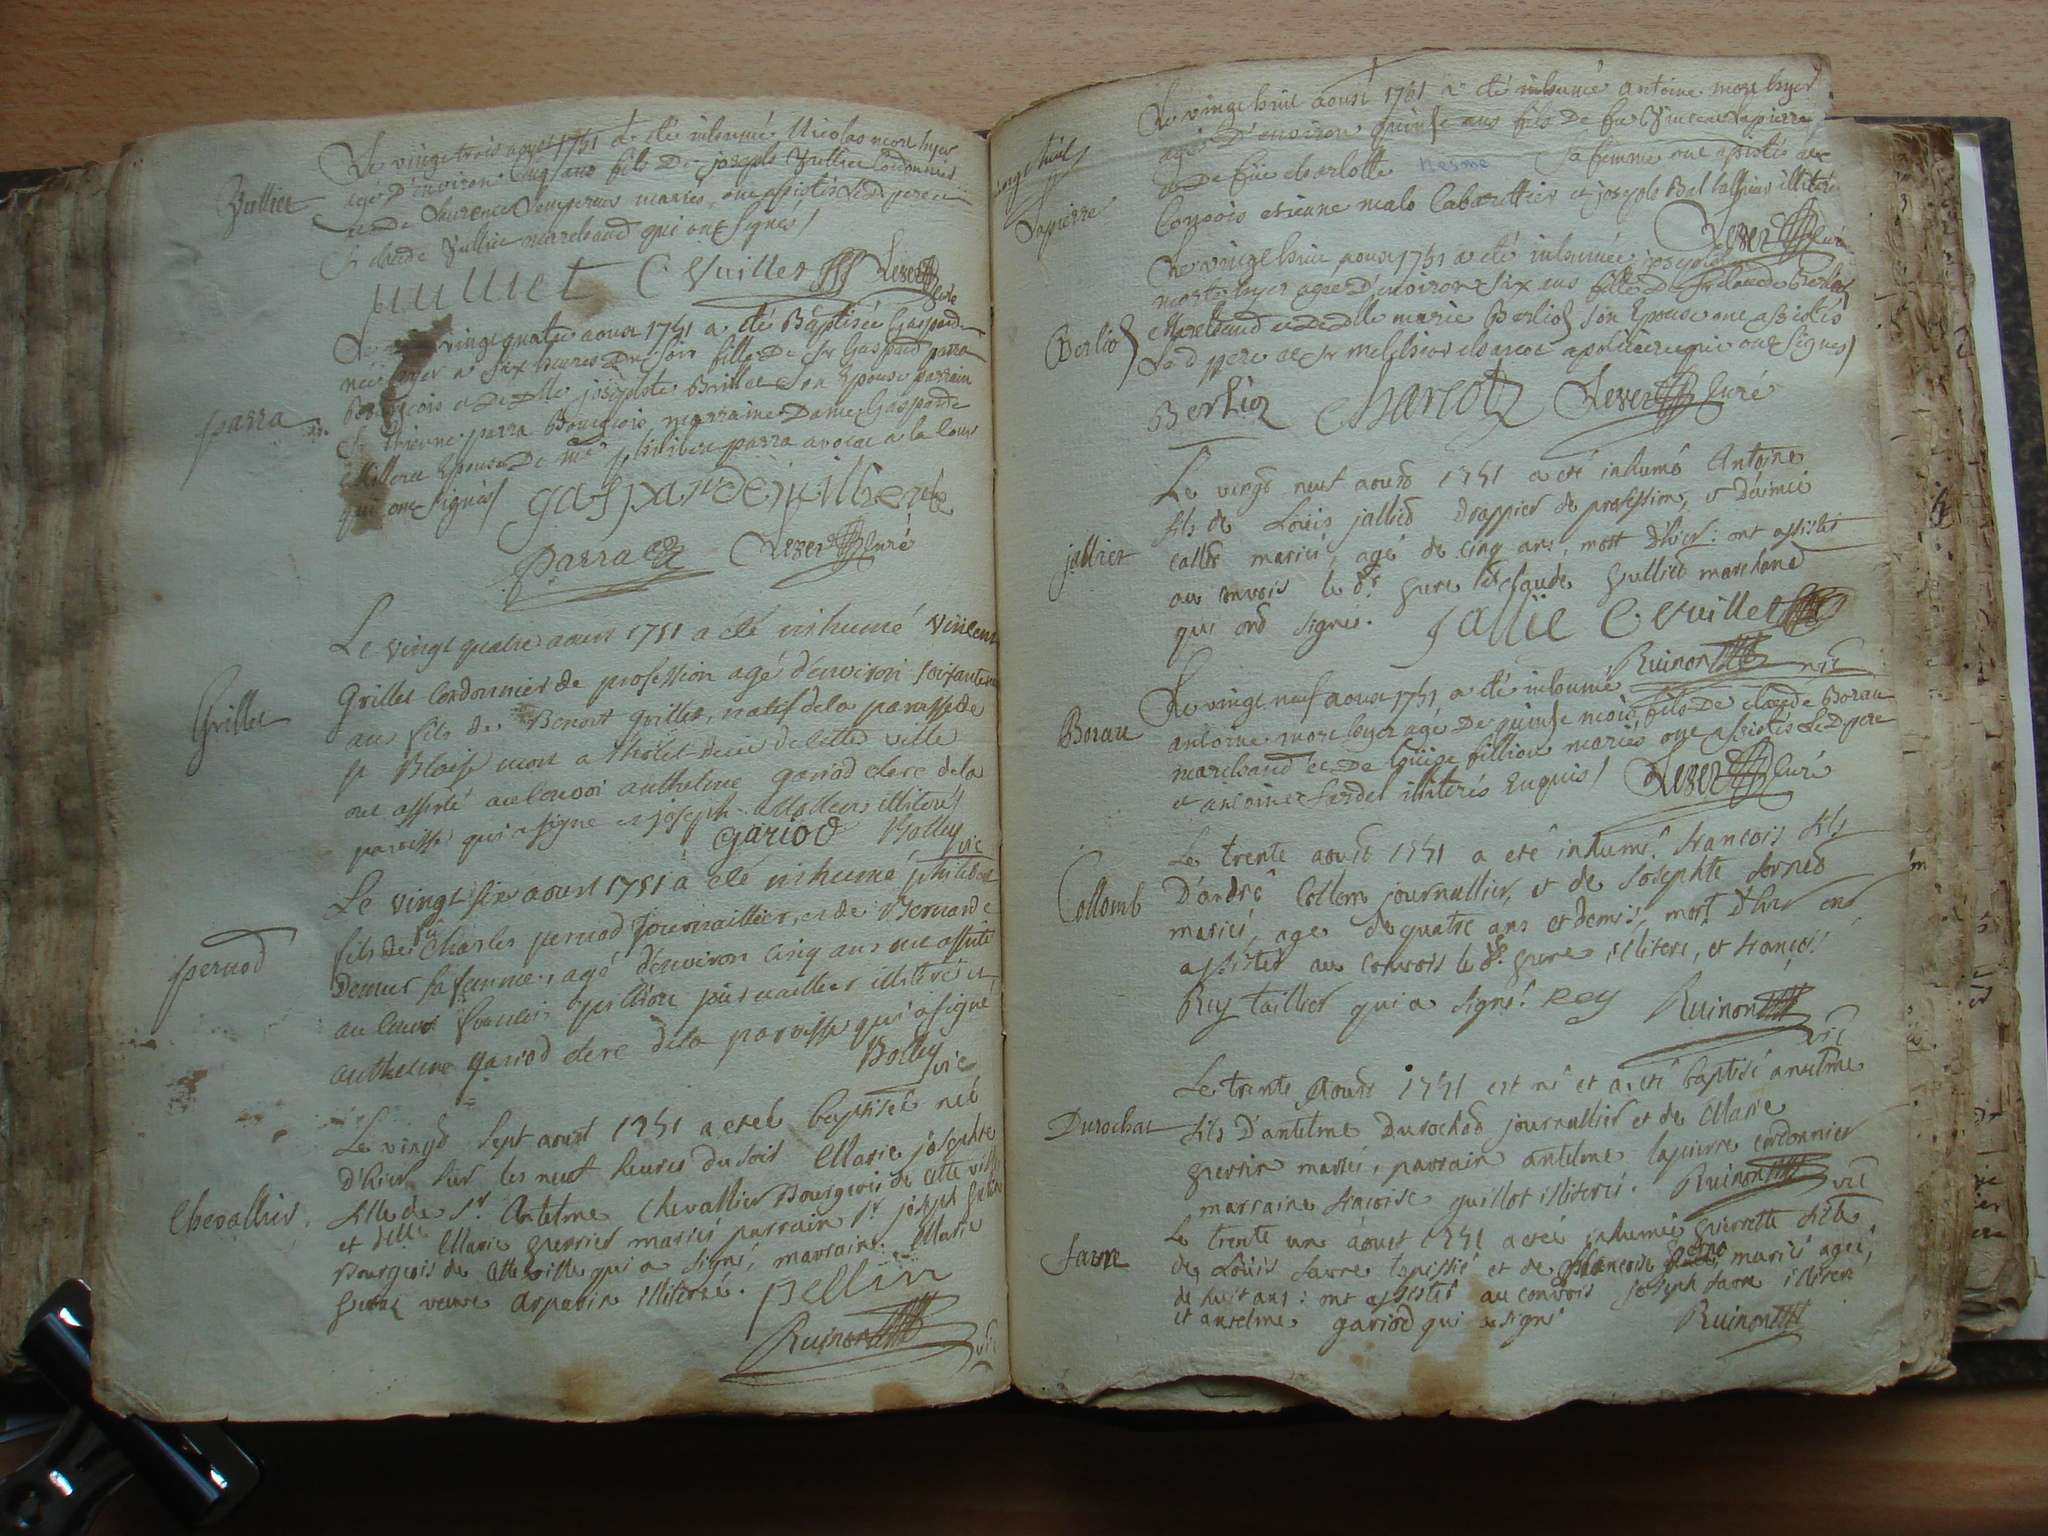 Vulliet
Le vingt trois aoust 1751 a été inhumé Nicolas mort hyer
agé d'environ cinq ans fils de joseph Vulliet Cordonnier
et de Laurence mariés, ont assistés led pere et
Sr claude Vulliet marchand qui ont signés /
vulliet C Vuillet Lever Curé
parra
Le vingt quatre aoust 1751 a été Baptisée Gasparde
née hyer a six heures du soir fille de Sr Gaspard parra
Bourgeois et de dlle josephte Brillat son Epouse parrain
Sr Etienne parra Bourgeois, marraine Dame Gasparde
Milleret Epouse de me philibert parra avocat a la Cour
qui ont signés /
parra Lever Curé
Grillet
Le vingt quatre aoust 1751 a été inhumé vincent
Grillet Cordonnier de profession agé d'environ soixante
ans fils de Benoit Grillet, natif de la paroisse de
st Blaise mort a l'hotel-Dieu de cette ville
ont assisté au convoi anthelme gariod clerc de la
paroisse qui a signé et joseph illiterés
gariod Bolley vic
pernod
Le vingt six aoust 1751 a été inhumé philibert
fils de fu Charles pernod journaillier, et de Bernarde
Demur sa femme, agé d'environ cinq ans ont assisté
au convoi journaillier illiteré et
anthelme gariod clerc de la paroisse qui a signé
Bolley vic
Chevallier
Le vingt sept aoust 1751 a eté baptisée née
d'hier sur les neuf heures du soir Marie josephte
fille de Sr. Antelme Chevallier Bourgeois de cette ville
et dlle Marie perrier mariés parrain Sr joseph
Bourgeois de cette ville qui a signé, marraine Marie
veuve arpurin illiterée. pellin
Ruinon vic
vingt huit
Lapierre
Le vingt huit aoust 1751 a été inhumé antoine mort hyer
agé d'environ quinse ans fils de feu Vincent Lapierre
et de füe charlotte Nesme sa femme ont assistés au
Convois etienne malo Cabarettier et joseph illiterés
Lever Curé
Berlioz
Le vingt huit aoust 1751 a été inhumée josephte
morte hyer agée d'environ six ans fille de Sr claude Berlioz
Marchand et de dlle marie Berlioz son Epouse ont assistés
led pere et Sr melchior charcot apoticaire qui ont signés /
Berlioz Charcot Lever Curé
jallier
Le vingt neuf aoust 1751 a eté inhumé Antoine
fils de Louis jallied drappier de profession, et d'aimée
callod mariés, agé de cinq ans, mort d'hier: ont assistés
au convois le d. pere et claude Vulliet marchand
qui ont signés. Jallie C Vuillet
Ruinon vic
Borau
Le vingt neuf aoust 1751 a été inhumé
antoine mort hyer agé de quinse mois, fils de claude Borau
marchand et de Loüise fillion mariés ont assistés led pere
et antoine Sardet illiterés Enquis / Lever Curé
Collomb
Le trente aoust 1751 a eté inhumé francois fils
D'andré Collom journallier, et de Josephte
mariés, agé de quatre ans et demis, mort d'hier ont
assistés au convois le d. pere illiteré, et francois
Rey taillier qui a signé. Rey Ruinon vic
Durochat
Le trente Aoust 1751 est né et a eté baptisé anselme
fils D'antelme Durochat journallier et de Marie
perrin mariés, parrain antelme lapierre cordonnier
marraine francoise guillot illiterés. Ruinon vic
favre
Le trente un aoust 1751 a eté inhumée pierrette fille
de Loüis favre tapissié et de francoise mariés agée
de huit ans: ont assistés au convois Joseph favre illiteré
et anselme gariod qui a signé Ruinon